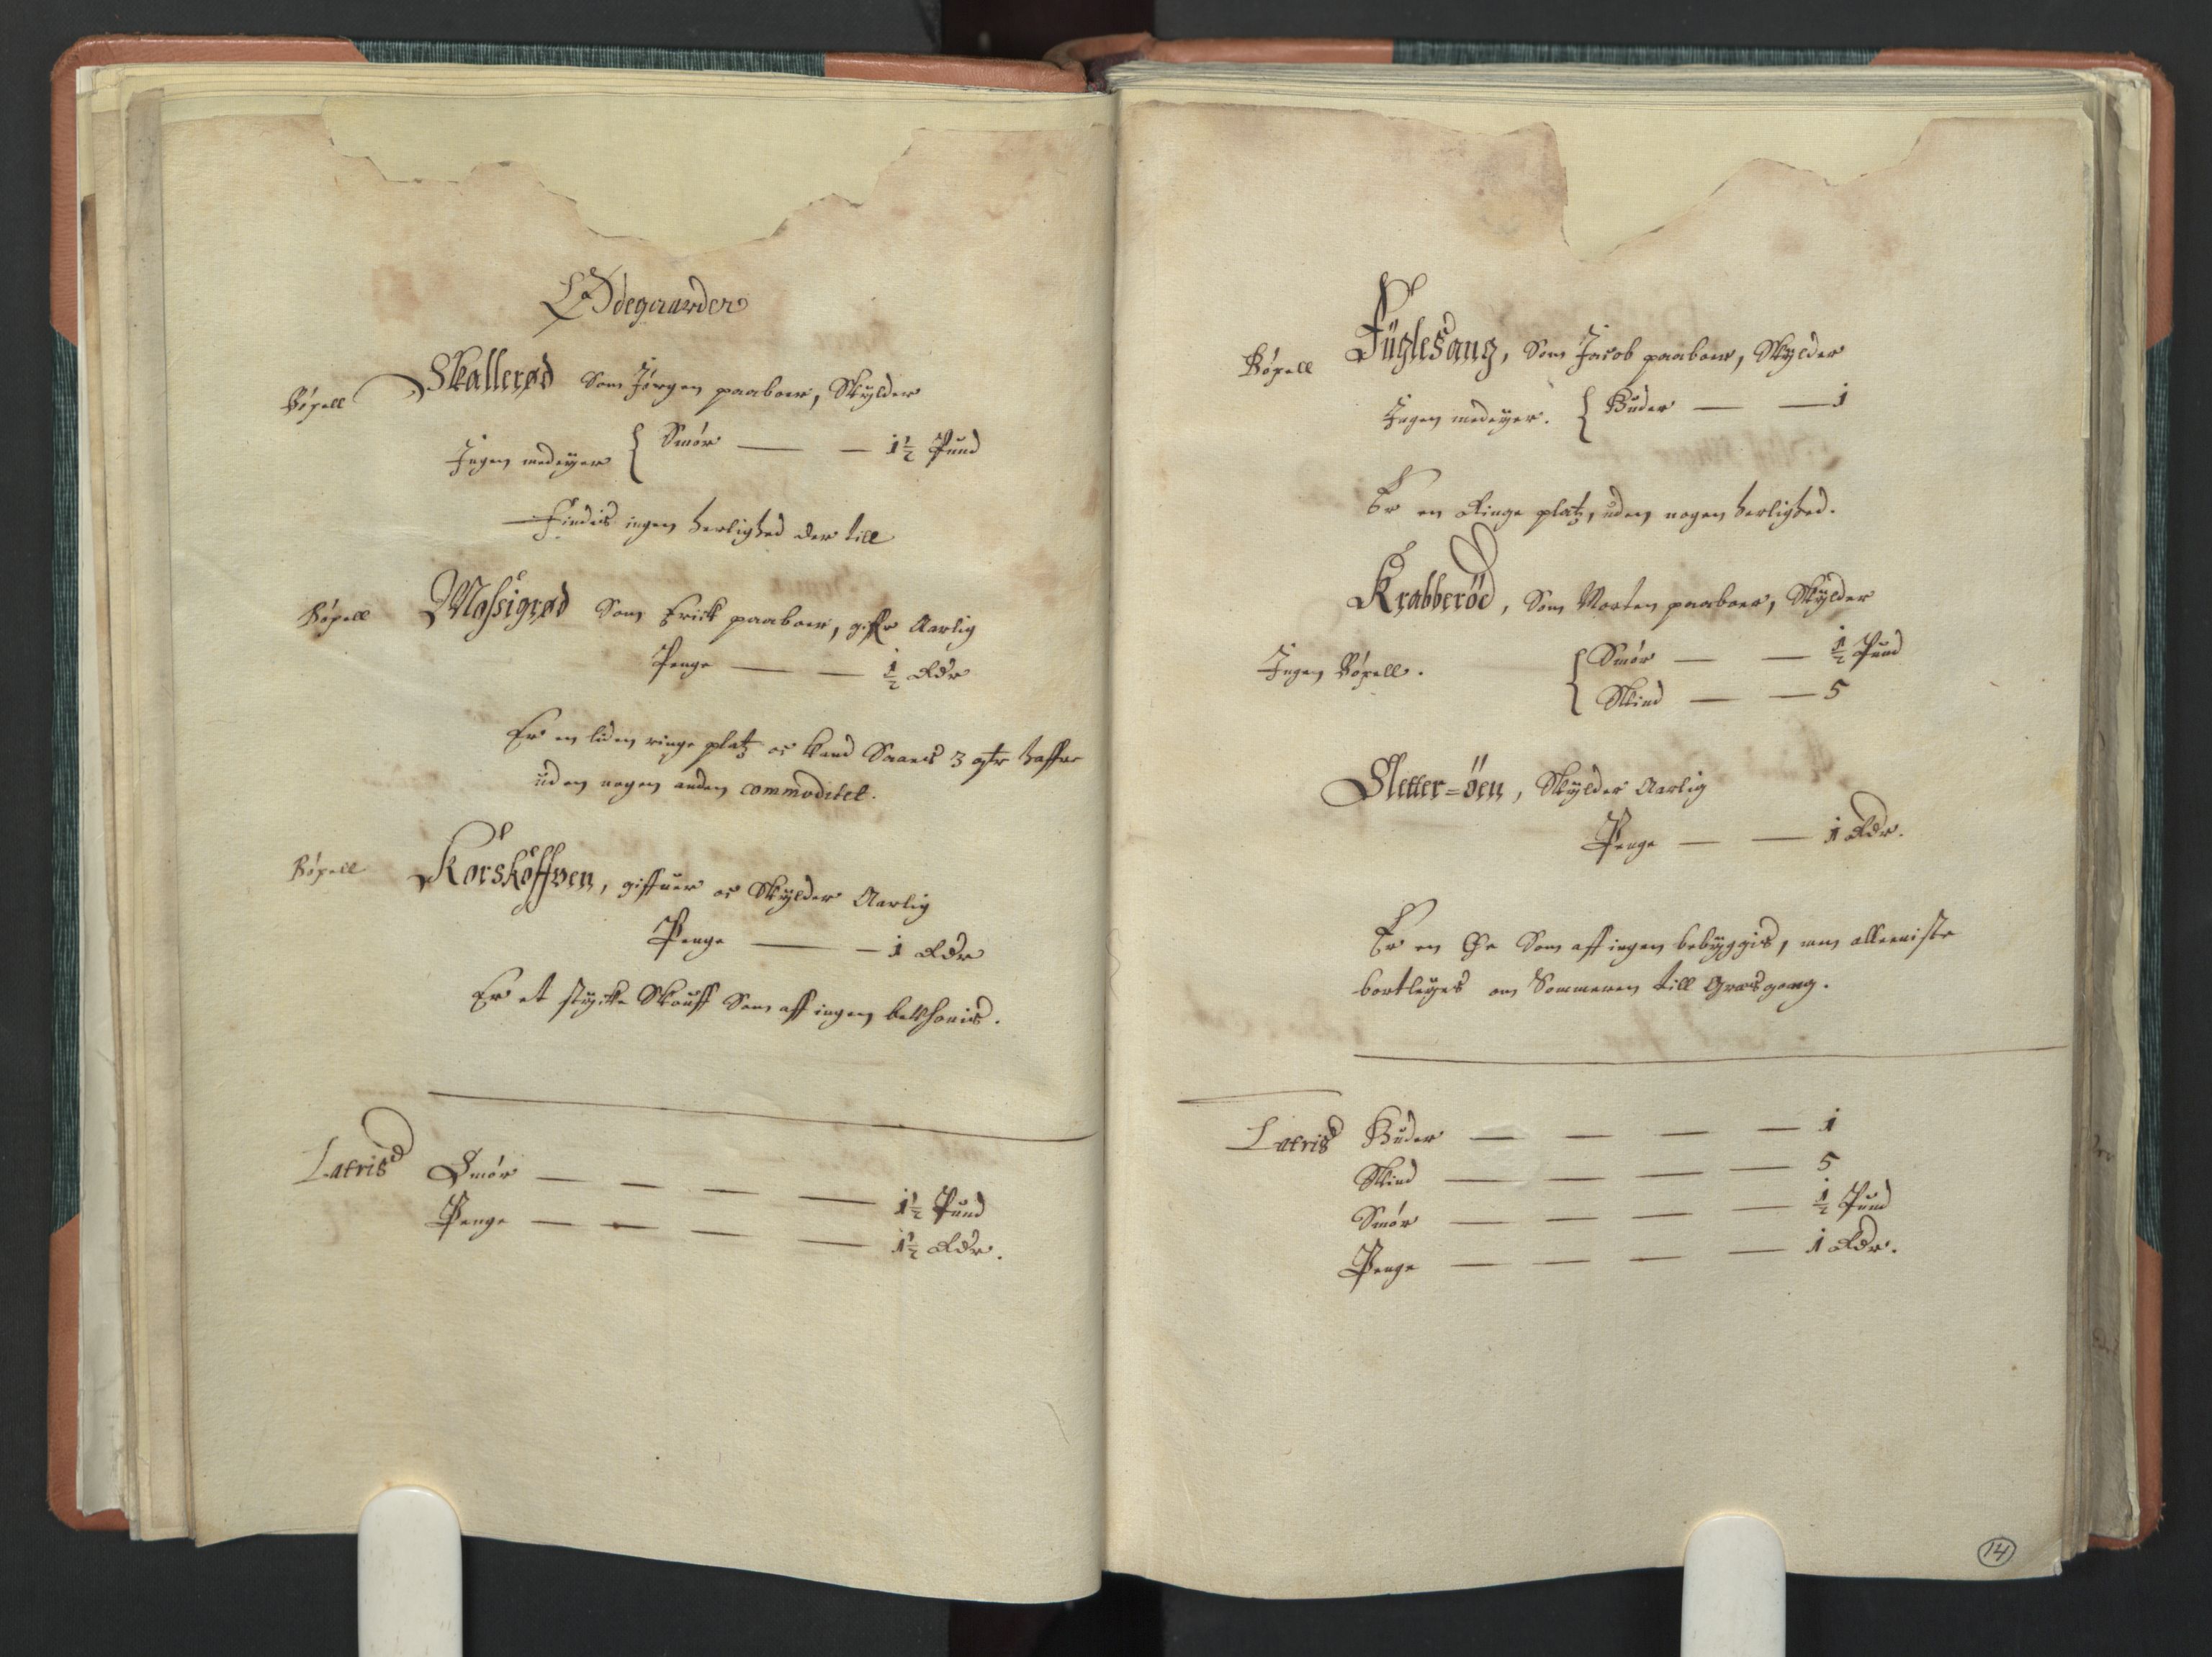 Ødegaarder
Bøxell Skallerød Som Jørgen paaboer, Skylder
Ingen medeyer { Smør — — 1½ Pund
Findis ingen herlighed der till
Bøxell Mossigrød Som Erick paaboer, giffr Aarlig
Penge — — ½ Rdr
Er en liden ringe platz oc kand Saaes 3 qtr haffre
uden nogen anden commoditet.
Bøxell Korskoffven, giffuer oc Skylder Aarlig
Penge — — 1 Rdr
Er et stycke Skouff Som aff ingen besihonis.
Lateris Smør — — — — 1½ Pund
Penge — — — — 1½ Rdr.
Bøxell Füglesang, Som Jacob paaboer, Skylder
Ingen medeyer. { Huder — — 1
Er en Ringe platz, uden nogen herlighed.
Krabberöd, Som Morten paaboer, Skylder
Ingen Bøxell. { Smør — — ½ Pund
Skind — — 5
Sletter=öen, Skylder Aarlig
Penge — — 1 Rdr.
Er en Øe Som aff ingen bebyggis, men alleeniste
bortleyes om Sommeren till Græsgang.
Lateris Huder — — — — 1
Skind — — — — 5
Smør — — — — ½ Pund
Penge — — — — 1 Rdr.
14